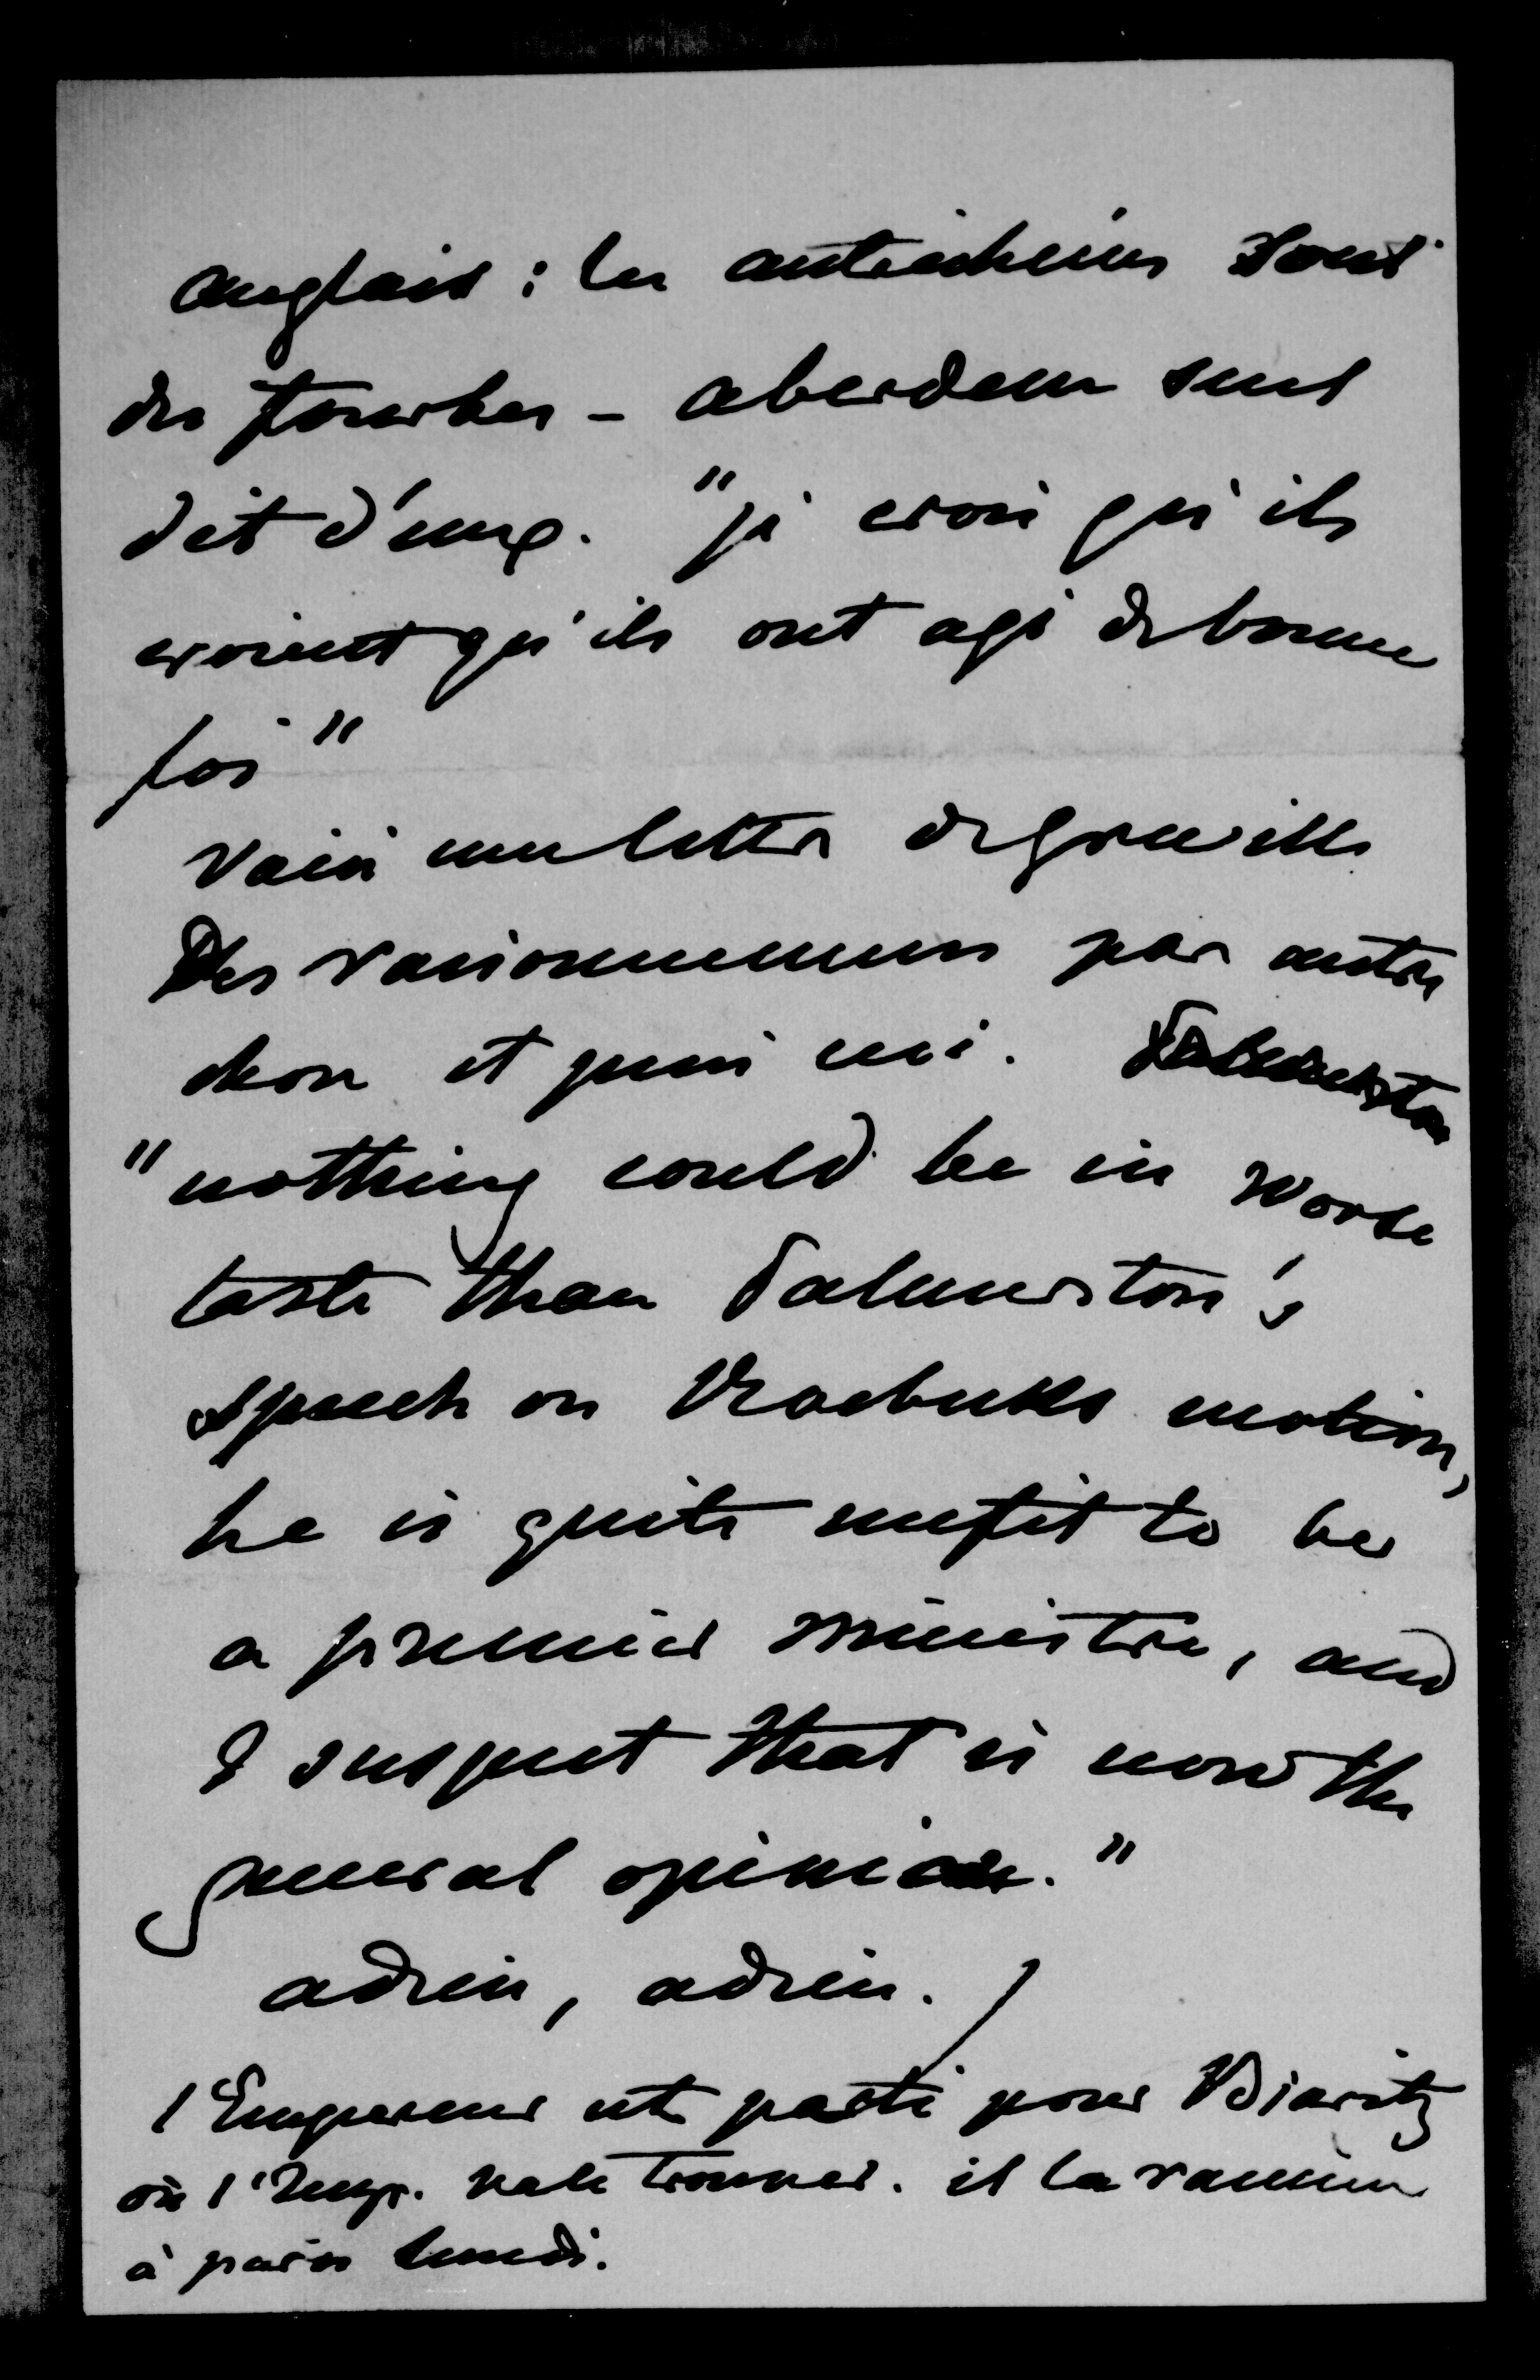 anglais : les autrichiens sont
des fourbes - aberdeen seul
dit d'eux. "je crois qu'ils
croient qu'ils ont agi de bonne
foi"
Voici une lettre de greville
Des raisonnemens par autre
chose et puis ceci. Palmerston
"nothing could be in worse
taste than Palmerston's
speech on Roebuks motion,
he is quite unfit to be
a premier ministre, and
I suspect that is now the
general opinion."
adieu, adieu.
l'Empereur est parti pour Biaritz
où l'Imp. va le trouver. il la ramène
à paris lundi.